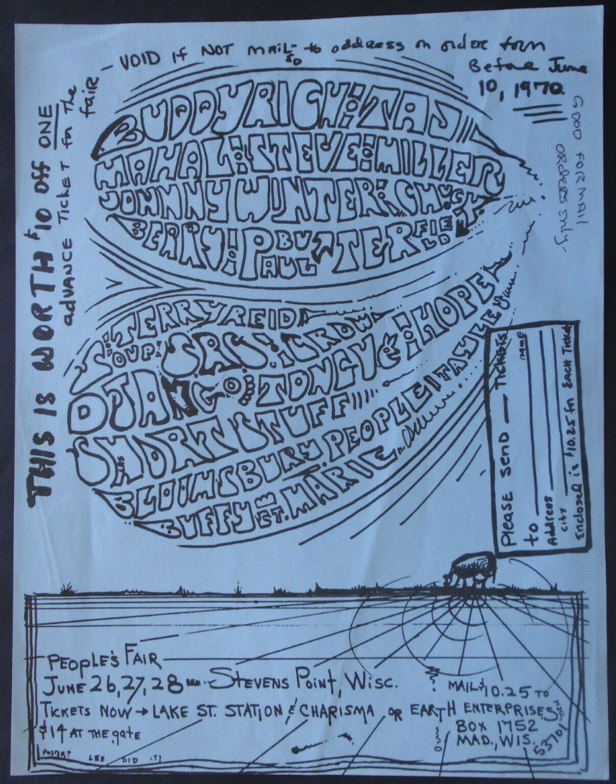 VOID if NOT MAIL-ED to address on order form
Before June
10, 1970
GOOD FOR MAIL
ORDERS ONLY-
THIS IS WORTH $10 off ONE
advance Ticket for the
fair
BUDDY RICH: TAJ
MAHAL: STEVE: MILLER
JOHNNY WINTER: CHUCK
BERRY: PAUL BUTTERFIELD
TERRY REID
SOUP: SRC: CROW
TONGUE: HOPE
SHORT STUFF
BLOOMSBURY PEOPLE
BUFFY ST. MARIE
PLEASE SEND — TICKETS
to NAME
Address
City
Enclosed is $10.25 for EACH Ticket
PEOPLE'S FAIR
JUNE 26, 27, 28 — STEVENS POINT, WISC.
TICKETS NOW → LAKE ST. STATION & CHARISMA OR EARTH ENTERPRISES
$14 AT THE gATE
MAIL $10.25 TO
BOX 1752
MAD., WIS.
53701
LEE DID IT!